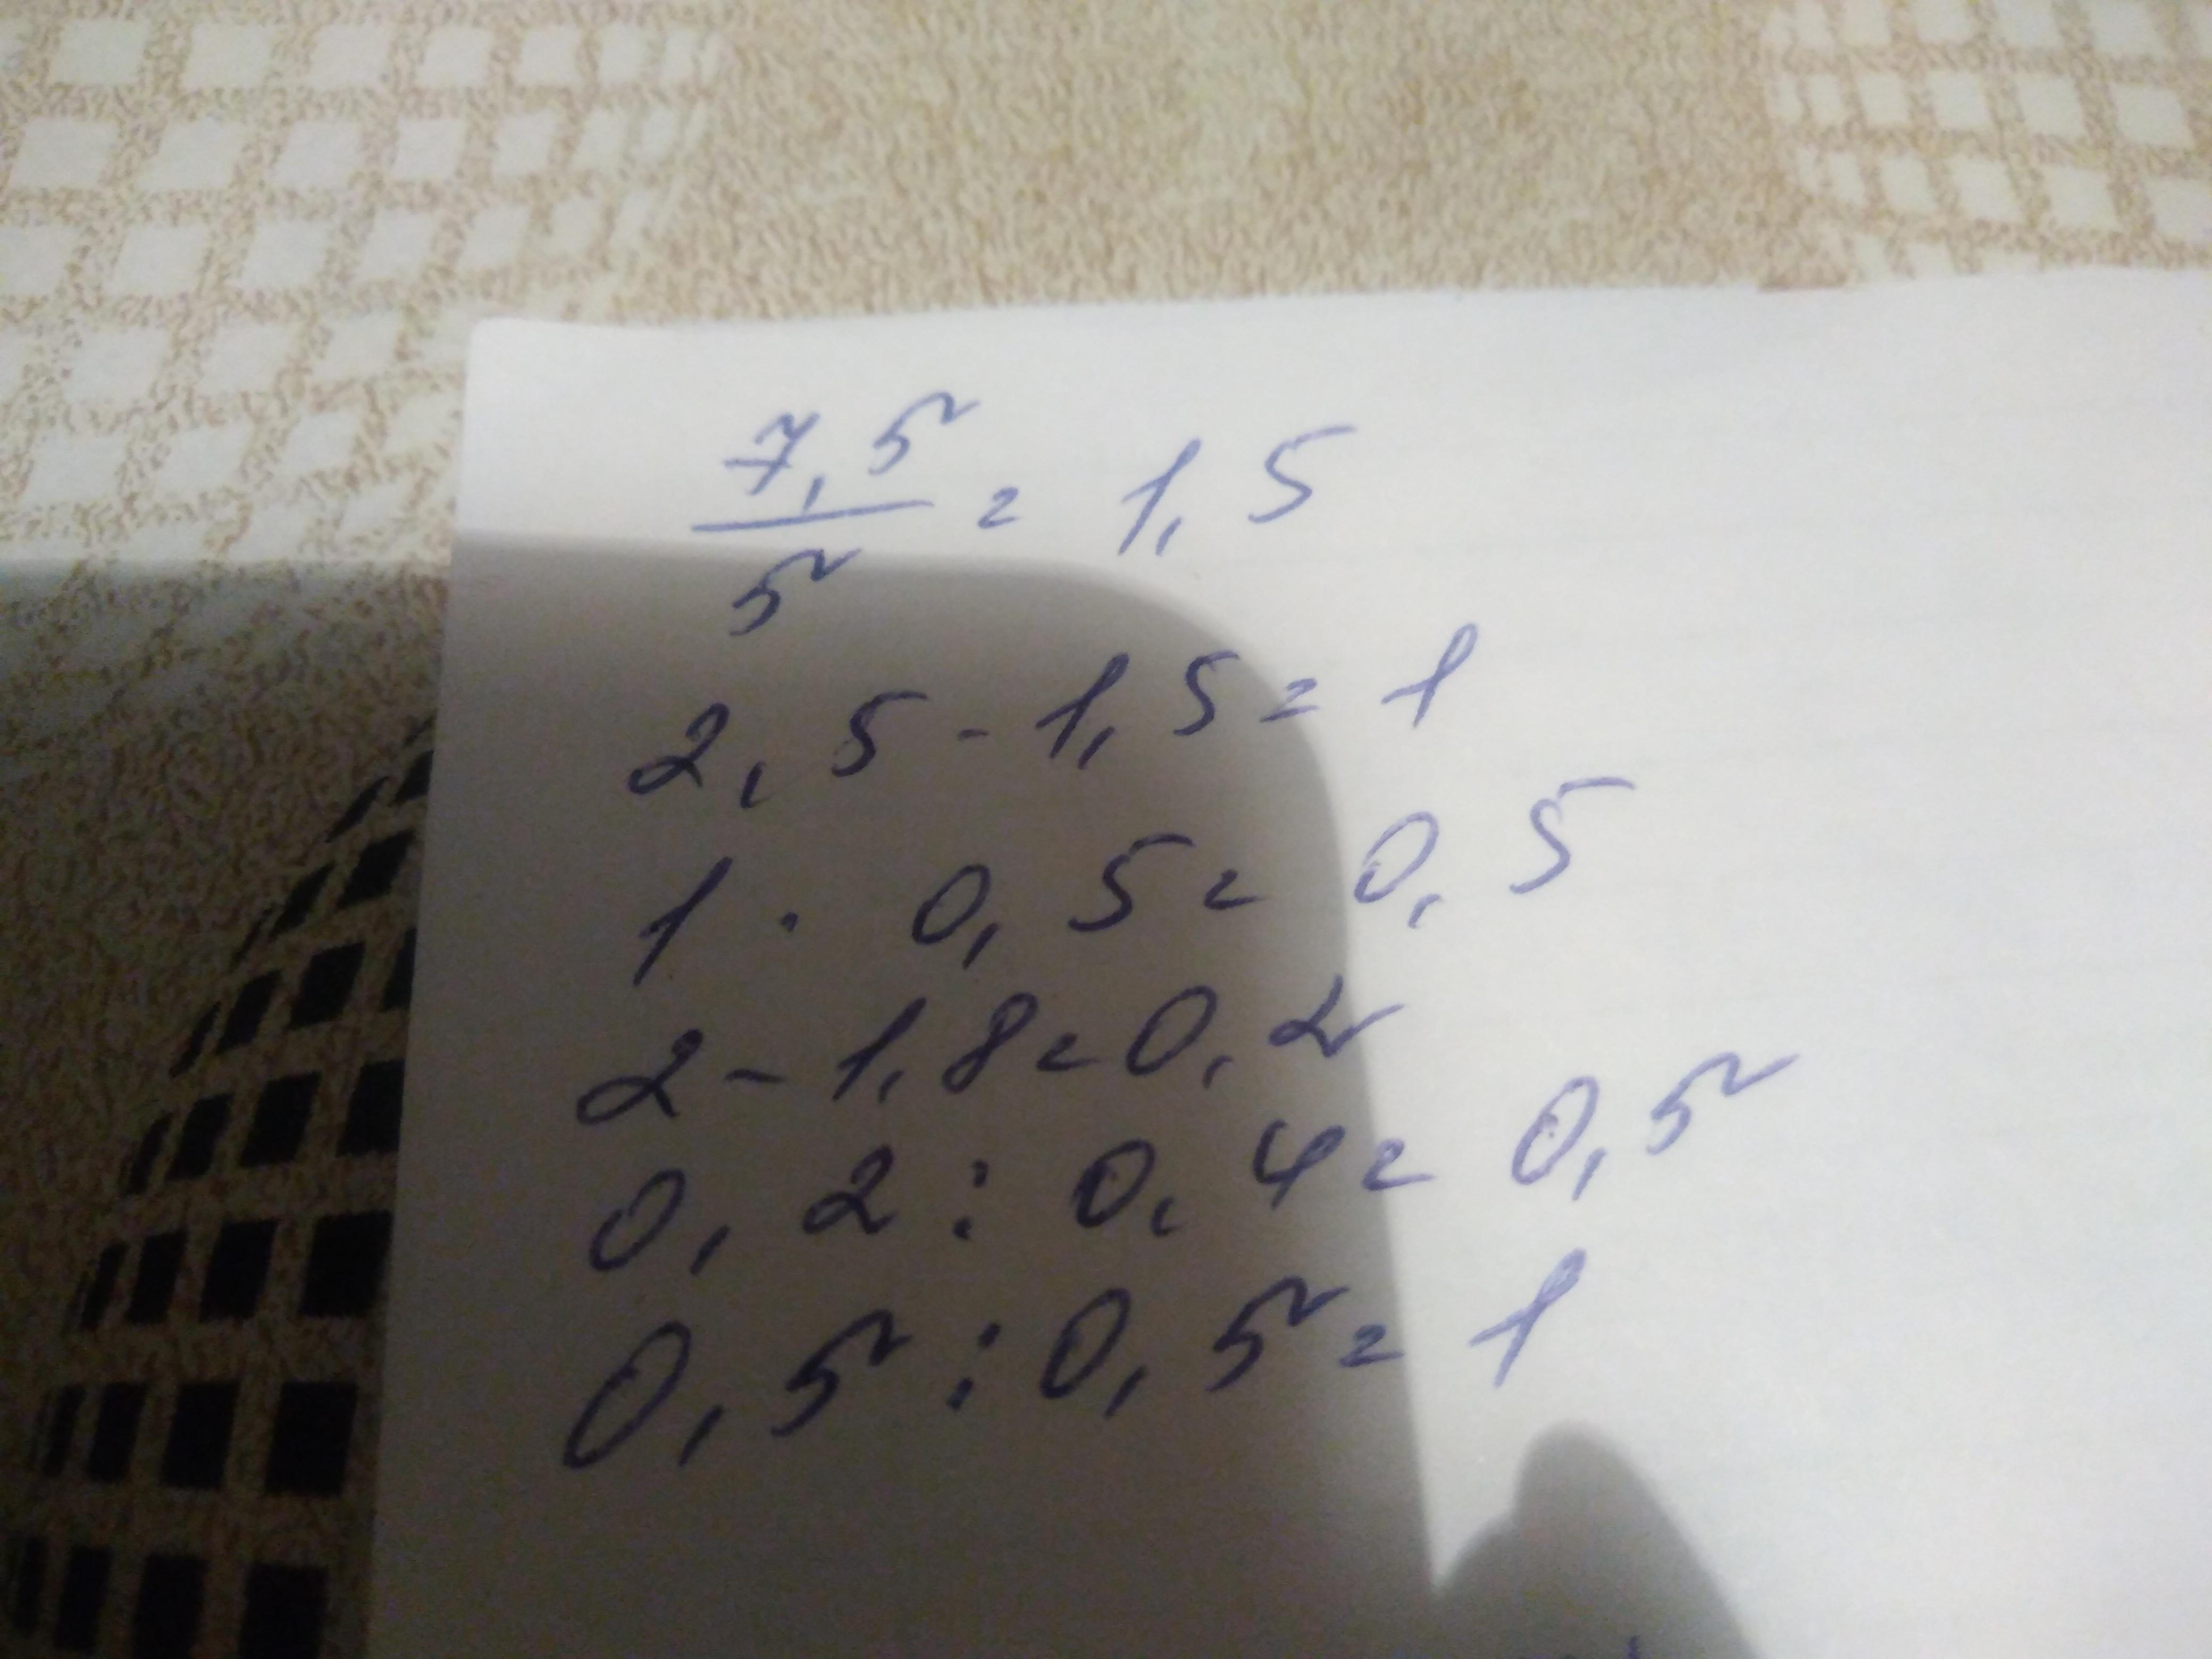 7,5/5 = 1,5
2,5 - 1,5 = 1
1 · 0,5 = 0,5
2 - 1,8 = 0,2
0,2 : 0,4 = 0,5
0,5 : 0,5 = 1